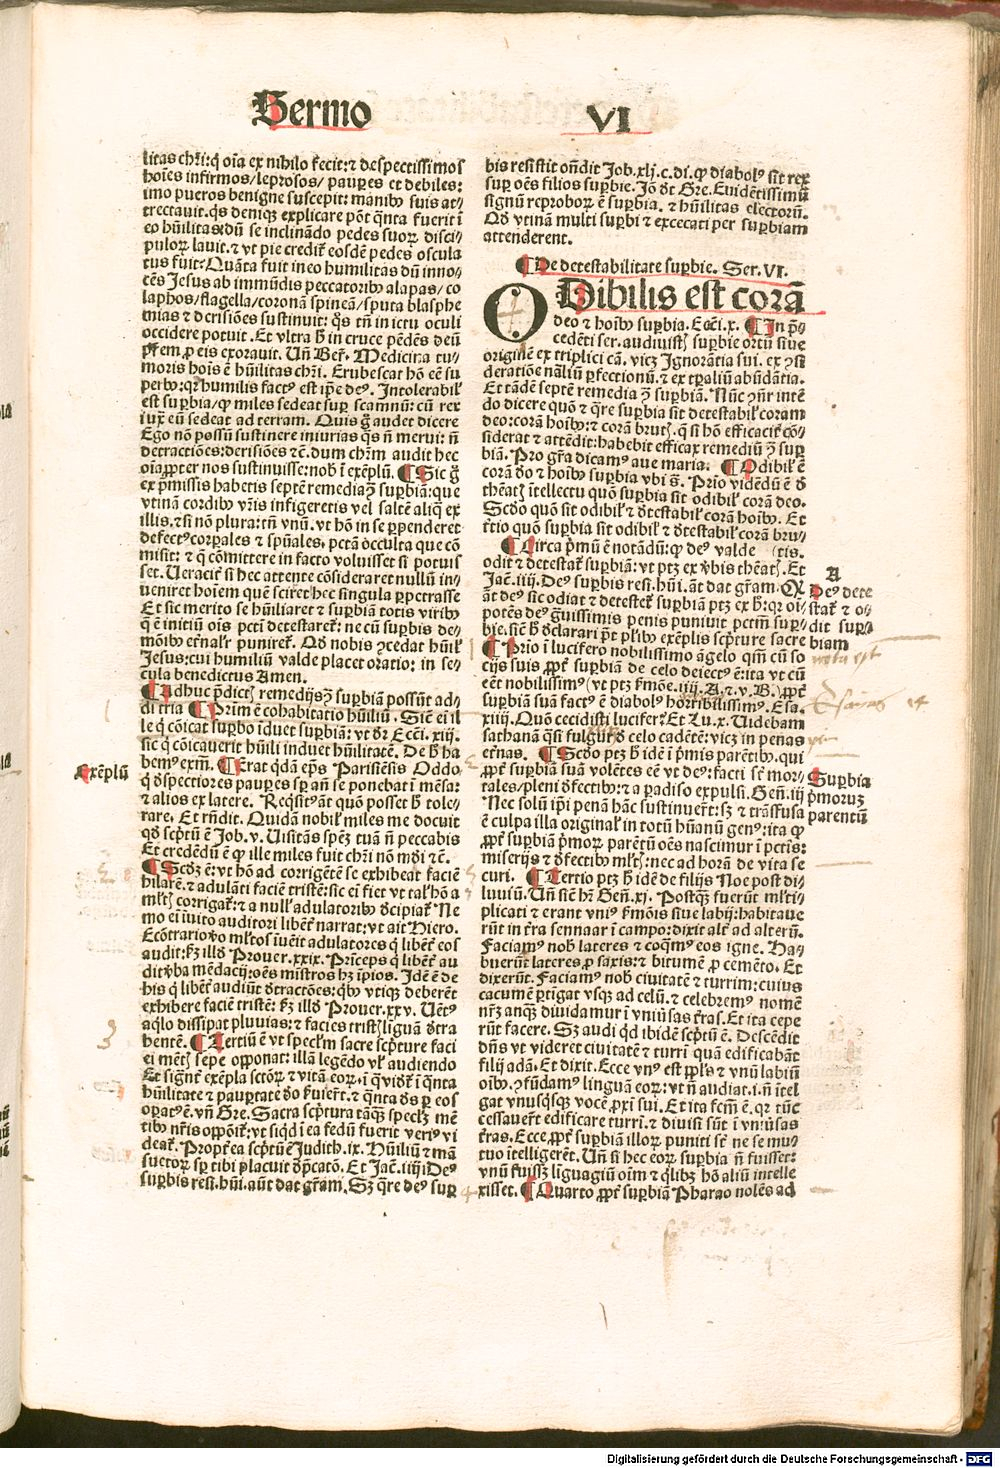 Sermo VI
litas chr̄i: q̇ oīa ex nihilo fecit: ⁊ despectissimos
hoīes infirmos/leprosos/ paup̲es et debiles:
imo pueros benigne suscepit: manibꝰ suis at⸗
trectauit. q̇s deniq̨ explicare pōt q̄nta fuerit ī
eo hūilitas: dū se inclinādo pedes suoꝝ disci⸗
puloꝝ lauit. ⁊ vt pie credit̄ eosdē pedes oscula
tus fuit: Quāta fuit in eo humilitas dū inno⸗
cēs Jesus ab immūdis peccatoribꝰ alapas/co
laphos/flagella/coronā spineā/sputa blasphe
mias ⁊ derisiōes sustinuit: q̇s tn̄ in ictu oculi
occidere potuit. Et vltra h̄ in cruce pēdēs deū
pr̄em p̱ eis exorauit. Un̄ Ber̄. Medicina tu⸗
moris hoīs ē hūilitas chr̄i. Erubescat hō eē su
perbꝰ: q̇ humilis fact̄ est ip̄e deꝰ. Intolerabil̄
est supbia/ q̨ miles sedeat sup̲ scamnū: cū rex
iux̄ eū sedeat ad terram. Quis g̊ audet dicere
Ego nō possū sustinere iniurias q̄s n̄ merui: n̄
detractiōes: derisiōes ⁊c̄. dum chr̄m audit hec
oīa p̱pter nos sustinuisse: nob̄ ī exēplū. ¶ Sic g̊
ex p̄missis habetis septē remedia ꝯ̄ supbiā: que
vtinā cordibꝰ vr̄is infigeretis vel saltē aliq̄ ex
illis. ⁊ si nō plura: tn̄ vnū. vt hō in se p̱penderet
defectꝰ corp̲ales ⁊ sp̄uales. pctā occulta que cō
misit: ⁊ q̄ cōmittere in facto voluisset si potuis
set. Ueracit̄ si hec attente cōsideraret nullū in⸗
ueniret hoīem quē sciret hec singula p̲petrasse
Et sic merito se hūiliaret ⁊ supbiā totis viribꝰ
q̄ ē initiū oīs pctī detestaret̄: ne cū supbis de⸗
mōibꝰ et̄nal̄r puniret̄. Qd̄ nobis ꝯcedat hūil̄
Jesus: cui humiliū valde placet oratio: in se⸗
cula benedictus Amen.
¶ Adhuc p̄dict̄ remedijs ꝯ̄ supbiā possūt ad⸗
di tria ¶ Prim̄ ē cohabitatio hūiliū. Sic̄ ei il
le q̇ cōicat supbo īduet supbiā: vt dr̄ Ecci. xiij.
sic q̇ cōicauerit hūili induet hūilitatē. De h̄ ha
bemꝰ exm̄. ¶ Erat q̇dā ep̄s Parisiēsis Oddo.
q̇ d̄spectiores paup̲es sp̱ an̄ se ponebat ī mēsa:
⁊ alios ex latere. Req̇sitꝰ āt quō posset h̄ tole⸗
rare. Et rn̄dit. Quidā nobil̄ miles me docuit
qd̄ scp̄tū ē Job. v. Uisitās spēz tuā n̄ peccabis
Et credēdū ē q̨ ille miles fuit chr̄i nō mūdi ⁊c̄.
¶ Scd̄z ē: vt hō ad corrigētē se exhibeat faciē
hilarē. ⁊ adulāti faciē tristē: sic ei fiet vt tal̄ hō a
ml̄t̄ corrigat̄: ⁊ a null̄ adulatoribꝰ d̄cipiat̄ Ne
mo ei īuito auditori libēt̄ narrat: vt ait Hiero.
Ecōtrario v̊o ml̄tos īuēit adulatores q̇ libēt̄ eos
audit: ẜz illd̄ Prouer. xxix. Prīceps q̇ libēt̄ au
dit v̄ba mēdacij: oēs mīstros hz īpios. Idē ē de
his q̇ libēt̄ audiūt d̄tractōes: q̇bꝰ vtiq̨ deberēt
exhibere faciē tristē: ẜz illd̄ Prouer. xxv. Uētꝰ
aq̇lo dissipat pluuias: ⁊ facies trist̄ liguā d̄tra
hentē. ¶ Tertiū ē vt specl̄m sacre scp̄ture faci
ei mēt̄ sepe opponat: illā legēdo vl̄ audiendo
Et signt̄ exēpla sctōꝝ ⁊ vitā eoꝝ. ī q̇ vidz̄ ī q̄nta
hūilitate ⁊ paup̲tate d̊o ẜuiert̄. ⁊ q̄nta d̄s p̲ eos
op̲atꝰ ē. vn̄ Gre. Sacra scp̄tura tāq̨̄ specl̄z mē
tibꝰ nr̄is oppōit̄: vt siqd̄ ī ea fedū fuerit veriꝰ vi
deat̄. Propt̄ea scp̄tū ē Judith. ix. Hūiliū ⁊ mā
suetoꝝ sp̱ tibi placuit dp̄catō. Et Jac̄. iiij. Deꝰ
supbis resi. hūi. aūt dat gr̄am. Sz q̄re deꝰ sup
bis resistit on̄dit Job. xlj. c. di. q̨ diabolꝰ sit rex
sup̲ oēs filios supbie. Jō dt̄ Gre. Euidētissimū
signū reproboꝝ ē supbia. ⁊ hūilitas electoꝝ.
Qd̄ vtinā multi supbi ⁊ excecati per supbiam
attenderent.
¶ De detestabilitate supbie. Ser. VI.
Odibilis est corā
deo ⁊ hoībꝰ supbia. Ecci. x. ¶ In p̄⸗
cedēti ser. audiuist̄ supbie ortū siue
originē ex triplici cā. vicz Ignorātia sui. ex ꝯsi
deratiōe nāliū p̲fectionū. ⁊ ex tp̱aliū abūdātia.
Et tādē septē remedia ꝯ̄ supbiā. Nūc ꝯn̄r intē
do dicere quō ⁊ q̄re supbia sit detestabil̄ coram
deo: corā hoībꝰ: ⁊ corā brut̄. q̄ si hō efficacit̄ cō⸗
siderat ⁊ attēdit: habebit efficax remediū ꝯ̄ sup
biā. Pro gr̄a dicamꝰ aue maria. ¶ Odibil̄ ē
corā d̊o ⁊ hoībꝰ supbia vbi s̄. Prīo vidēdū ē d̄
thēat̄ ītellectu quō supbia sit odibil̄ corā deo.
Scd̄o quō sit odibil̄ ⁊ d̄testabil̄ corā hoībꝰ. Et
t̄tio quō supbia sit odibil̄ ⁊ d̄testabil̄ corā bru⸗
¶ Circa p̄mū ē notādū: q̨ deꝰ valde (tis.
odit ⁊ detestat̄ supbiā: vt ptz ex v̄bis thēat̄. Et
Jac̄. iiij. Deꝰ supbis resi. hūi. āt dat gr̄am. Q̨
āt deꝰ sic odiat ⁊ detestet̄ supbiā ptz ex h̄: qꝛ oī⸗
potēs deꝰ g̊uissimis penis puniuit pctm̄ sup⸗
bie. sic̄ h̄ d̄clarari pōt pl̄ibꝰ exēplis scp̄ture sacre
¶ Prīo ī lucifero nobilissimo āgelo q̇ cū so
cijs suis pp̱t̄ supbiā de celo deiectꝰ ē: ita vt cū
eēt nobilissimꝰ (vt ptz ẜmōe. iiij. A. ⁊. v. B.) pp̱t̄
supbiā suā factꝰ ē diabolꝰ horribilissimꝰ. Esa.
xiiij. Quō cecidisti lucifer: Et Lu. x. Uidebam
sathanā q̄si fulgur d̄ celo cadētē: vicz in penas
et̄nas. ¶ Scd̄o ptz h̄ idē ī p̄mis parētibꝰ. qui
pp̱t̄ supbiā suā volētes eē vt deꝰ: facti st̄ mor⸗
tales/pleni d̄fectibꝰ: ⁊ a paradiso expulsi. Gen̄. iij
Nec solū ip̄i penā hāc sustinuert̄: ẜz ⁊ trāsfusa
ē culpa illa original̄ in totū hūanū genꝰ: ita q̨
pp̱t̄ supbiā p̄moꝝ parētū oēs nascimur ī pctīs:
miserijs ⁊ d̄fectibꝰ ml̄t̄: nec ad horā de vita se
curi. ¶ Tertio ptz h̄ idē de filijs Noe post di⸗
luuiū. Un̄ sic̄ hr̄ Gen̄. xj. Postq̨̄ fuerūt ml̄ti⸗
plicati ⁊ erant vniꝰ ẜmōis siue labij: habitaue
rūt in t̄ra sennaar ī campo: dixit alt̄ ad alterū.
Faciamꝰ nob̄ lateres ⁊ coq̄mꝰ eos igne. Ha⸗
buerūt lateres p̱ saxis: ⁊ bitumē p̱ cemēto. Et
dixerūt. Faciamꝰ nob̄ ciuitatē ⁊ turrim: cuius
cacumē p̲tigat vsq̨ ad celū. ⁊ celebremꝰ nomē
nr̄z anq̨̄ diuidamur ī vniūsas t̄ras. Et ita cepe
rūt facere. Sz audi qd̄ ibidē scp̄tū ē. Descēdit
dn̄s vt videret ciuitatē ⁊ turrī quā edificabāt
filij adā. Et dixit. Ecce vnꝰ est ppl̄s ⁊ vnū labiū
oībꝰ. ꝯfūdamꝰ linguam eoꝝ: vt n̄ audiat. i. n̄ ītel
gat vnusq̇sq̨ vocē p̱xi sui. Et ita fcm̄ ē. qꝛ tūc
cessauer̄t edificare turrī. ⁊ diuisi sūt ī vniūsas
t̄ras. Ecce pp̱t̄ supbiā illoꝝ puniti st̄ ne se mu⸗
tuo ītelligerēt. Un̄ si hec eoꝝ supbia n̄ fuisset:
vnū fuissz liguagiū oīm ⁊ q̇libz hō aliū intelle
xisset. ¶ Quarto pp̱t̄ supbiā Pharao nolēs ad
Exēplū
3
A
Deꝰ dete
stat̄ ⁊ o⸗
dit sup⸗
biam
nota est
Esaias 14
Supbia
p̄moruꝫ
parentū
Digitalisierung gefördert durch die Deutsche Forschungsgemeinschaft - DFG